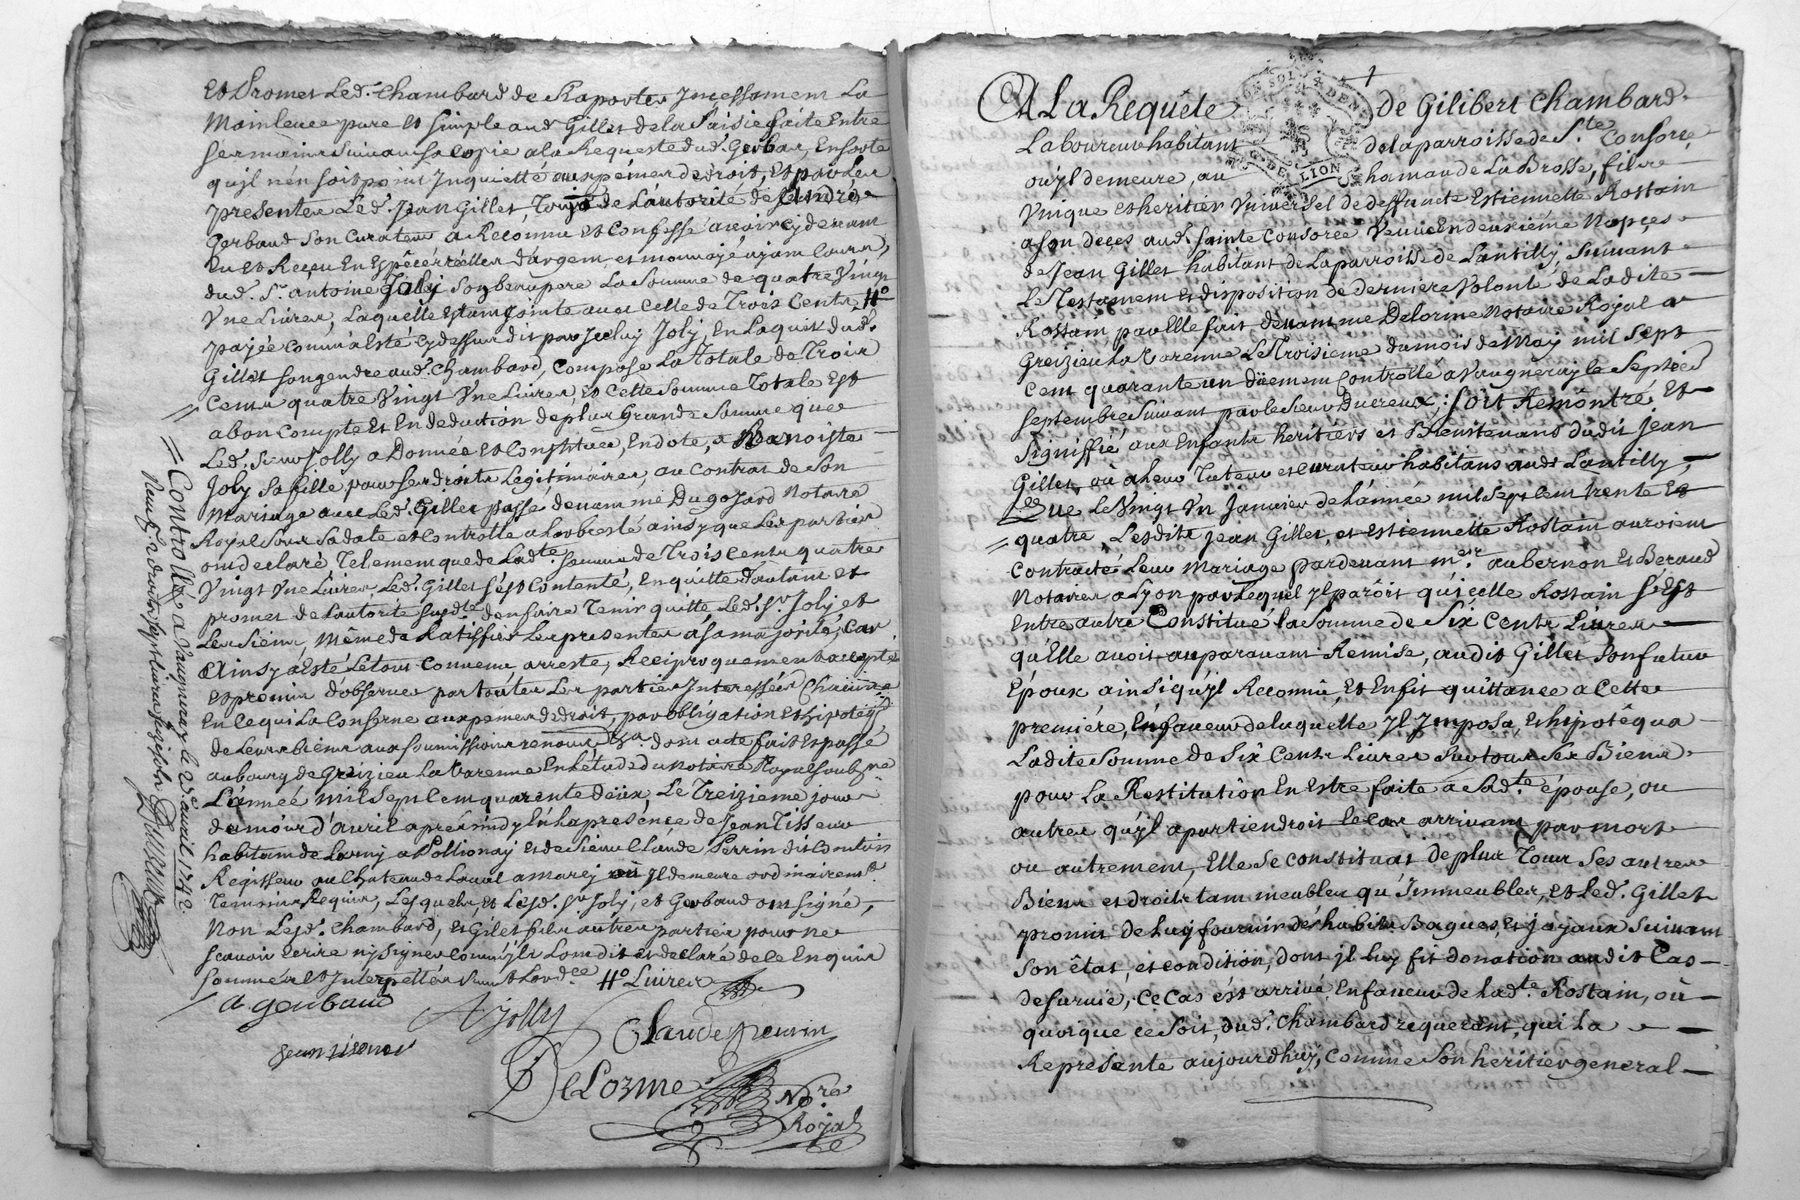 Et Promet Led. Chambard de Raporter Incessament La
Mainlevée pure et simple aud. Gillet de la Saisie faite Entre
ses mains suivant sa copie a la Requeste dud. Gerbau, En sorte
qu'jl n'en soit point Inquietté aux peines de droit, Et par Les
presentes Led. Jean Gillet, de L'autorité de
Gerbaud Son Curateur a Reconnu et Confessé avoir cy devant
Eu et Receu En Espèces réelles d'argent et monnayé ayant cours,
dud. Sr. antoine Jolij Son beaupere La Somme de quatre Vingt
Vne Livres, Laquelle Estant jointe avec Celle de Trois Cents #o
payée comme a Esté cy dessus dit par Jceluy Jolj, En Laquit dud.
Gillet son gendre aud. Chambard, Compose La Totale de Trois
Cents quatre Vingt Vne Livres, Et Cette Somme Totale Est
a bon Compte et En deduction de plus grande Somme que
Led. Sieur Jolly a Donnée et Constituée, En dote, a Benoiste
Joly Sa fille pour ses droits Legitimaires, au Contrat de Son
Mariage avec Led. Gillet passé devant me Dugoyard Notaire
Royal Sous Sa date et Controllé a Larbresle ainsy que Les parties
ont declaré Tellement que de Lad.te Somme de Trois Cents quatre
Vingt Vne Livres, Led. Gillet S'est Contenté, En quitte d'autant et
promet de L'autorité Susd.te d'en faire Tenir quitte Led. Sr. Jolj et
Les Siens, Même de Ratiffier Les presentes a Sa majorité, Car
Ainsy a Esté Le tout Convenu arresté, Reciproquement accepté
et promis d'observer par toutes Les parties Interessées Chacune
En Ce qui La Conserne aux peines de droit, par obligation Et hipoteq.
de Leurs biens aux Soumissions renonc. &a. dont acte fait Et passé
au bourg de Greizieu La Varenne En L'etude du Notaire Royal Soubz.né
L'année Mil Sept Cent quarente deux, Le Treizieme jour
du mois d'avril apres midy En La presence de Jean Tisseur
habitant de a Pollionay Et de Sieur Claude Perrin dit
Regisseur au Chateau de Laval a marcy où Jl demeure ordinairem.t
Temoins Requis, Lesquels, et Lesd. Sr. Jolj, et Gerbaud ont signé,
Non Lesd. Chambard, Et Gilet fils autres parties pour ne
Scavoir Ecrire ny Signer Comm'jls Lont dit et declaré de ce Enquis
Sommés Et Interpellés Suivt. Lord.ce #o Livres
a gerbaud
A jolly
Claude Perrin
Jean tiseur
DeLorme No.re
Royal
Controllé a Vaugneray le 23e avril 1742.
Ducreux
A La Requête de Gilibert Chambard
Laboureur habitant de la parroisse de S.te Consorce
ou jl demeure, au hamau de La Brosse, fils
Vnique et heritier Vniversel de deffuncte Estiennette Rostain
a son deces aud. Sainte Consorce Veuve En deuxiéme Nopces
de Jean Gillet habitant de La parroisse de Lantilly, Suivant
Le Testament et disposition de derniere Volonté de Ladite
Rostain par Elle fait devant me Delorme Notaire Royal a
Greizieu La Varenne Le Troisieme du mois de May mil sept
Cent quarante un düement Controllé a Vaugneray le Sept
Septembre Suivant par le Sieur Ducreux; Soit Remontré Et
Signiffié aux Enfants heritiers et Bientenans dudit Jean
Gillet, ou a leur Tuteur et curateur habitans aud. Lantilly,
Que Le Vingt Vn Janvier de L'année mil sept Cent trente Et
quatre, Lesdits Jean Gillet, et Estiennette Rostain auroient
Contracté Leur Mariage pardevant m.er aubernon Et Beraud
Notaires a Lyon par Lequel jl parôit qu'jcelle Rostain S'est
Entre autre Constitué la Somme de Six Cents Livres
qu'Elle avoit auparavant Remise, audit Gillet Son futur
Epoux ainsi qu'jl Reconnû, Et En fit quittance a Cette
premiére, En faveur de laquelle jl Jmposa, Et hipotêqua
Ladite Somme de Six Cents Livres Sur tous Ses Biens
pour La Restitution En Estre faite a Lad.te épouse, ou
autres qu'jl apartiendroit le Cas arrivant par mort
ou autrement, Elle se constituat de plus Tous Ses autres
Biens et droits tant meubles qu'Jmmeubles, Et Led. Gillet
promit de Luy fournir des habits Bagues, Et joyaux Suivant
Son êtat, et condition, dont jl luy fit donation audit Cas
de Survie, Ce Cas ést arrivé En faveur de Lad.te Rostain, ou
quoique ce Soit, dud. Chambard requerant, qui La
Represente aujourdhuy, Comme Son heritier general
LION